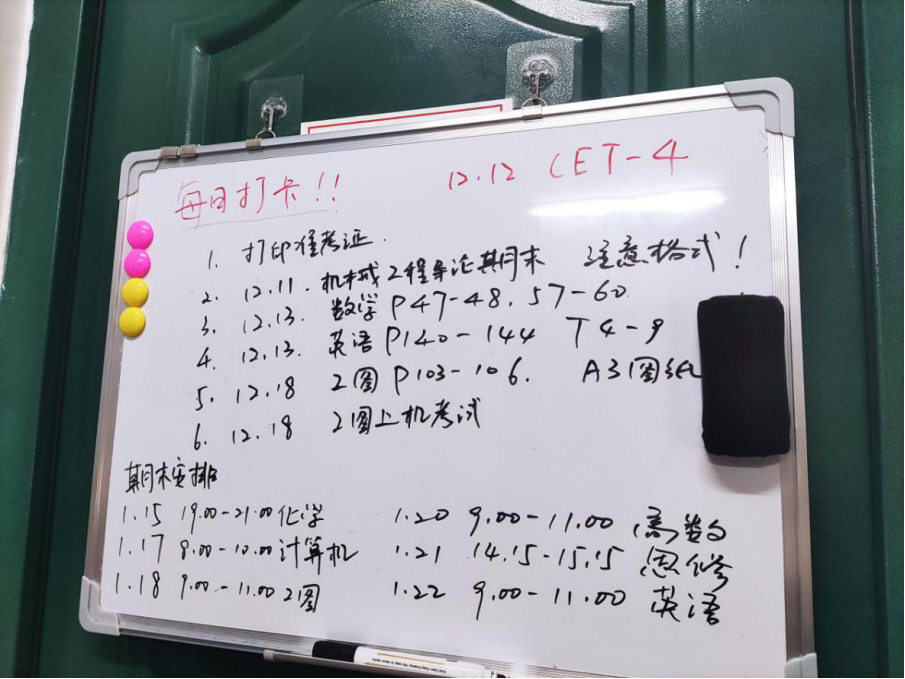 每日打卡!! 12.12 CET-4
1. 打印准考证.
2. 12.11. 机械工程导论期末 注意格式!
3. 12.13. 数学 P47-48. 57-60
4. 12.13. 英语 P140-144 T4-9
5. 12.18 工图 P103-106. A3图纸
6. 12.18 工图上机考试
期末安排
1.15 19.00-21.00 化学 1.20 9.00-11.00 高数
1.17 8.00-10.00 计算机 1.21 14.15-15.15 思修
1.18 9.00-11.00 工图 1.22 9.00-11.00 英语